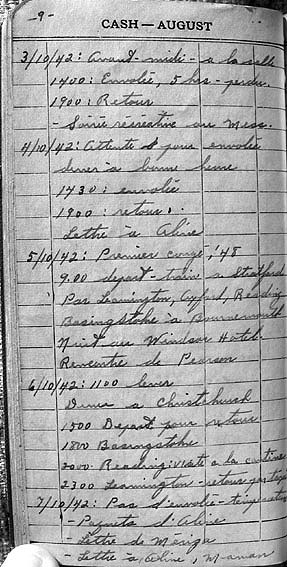 -9-
CASH—AUGUST
3/10/42: Avant-midi - a la salle
1400: Envolée, 5 hrs - perdu.
1900: Retour
- Soirée récréative au Mess.
4/10/42: Attente pour envolée
diner à bonne heure
1430: envolée
1900: retour.
Lettre à Aline
5/10/42: Premier congé, 48
9.00 depart - train a Stratford
Par Leamington, Oxford, Reading
Basingstoke à Bournemouth
Nuit au Windsor Hotel.
Rencontre de Pearson
6/10/42: 1100 lever
Diner a Christchurch
1500 Depart pour retour
1800 Basingstoke
2000: Reading: visite a la cantine
2300 Leamington - retour par
7/10/42: Pas d'envolée -
- Paquets d'Aline
- Lettre de Meriza
- Lettre à Aline, Maman